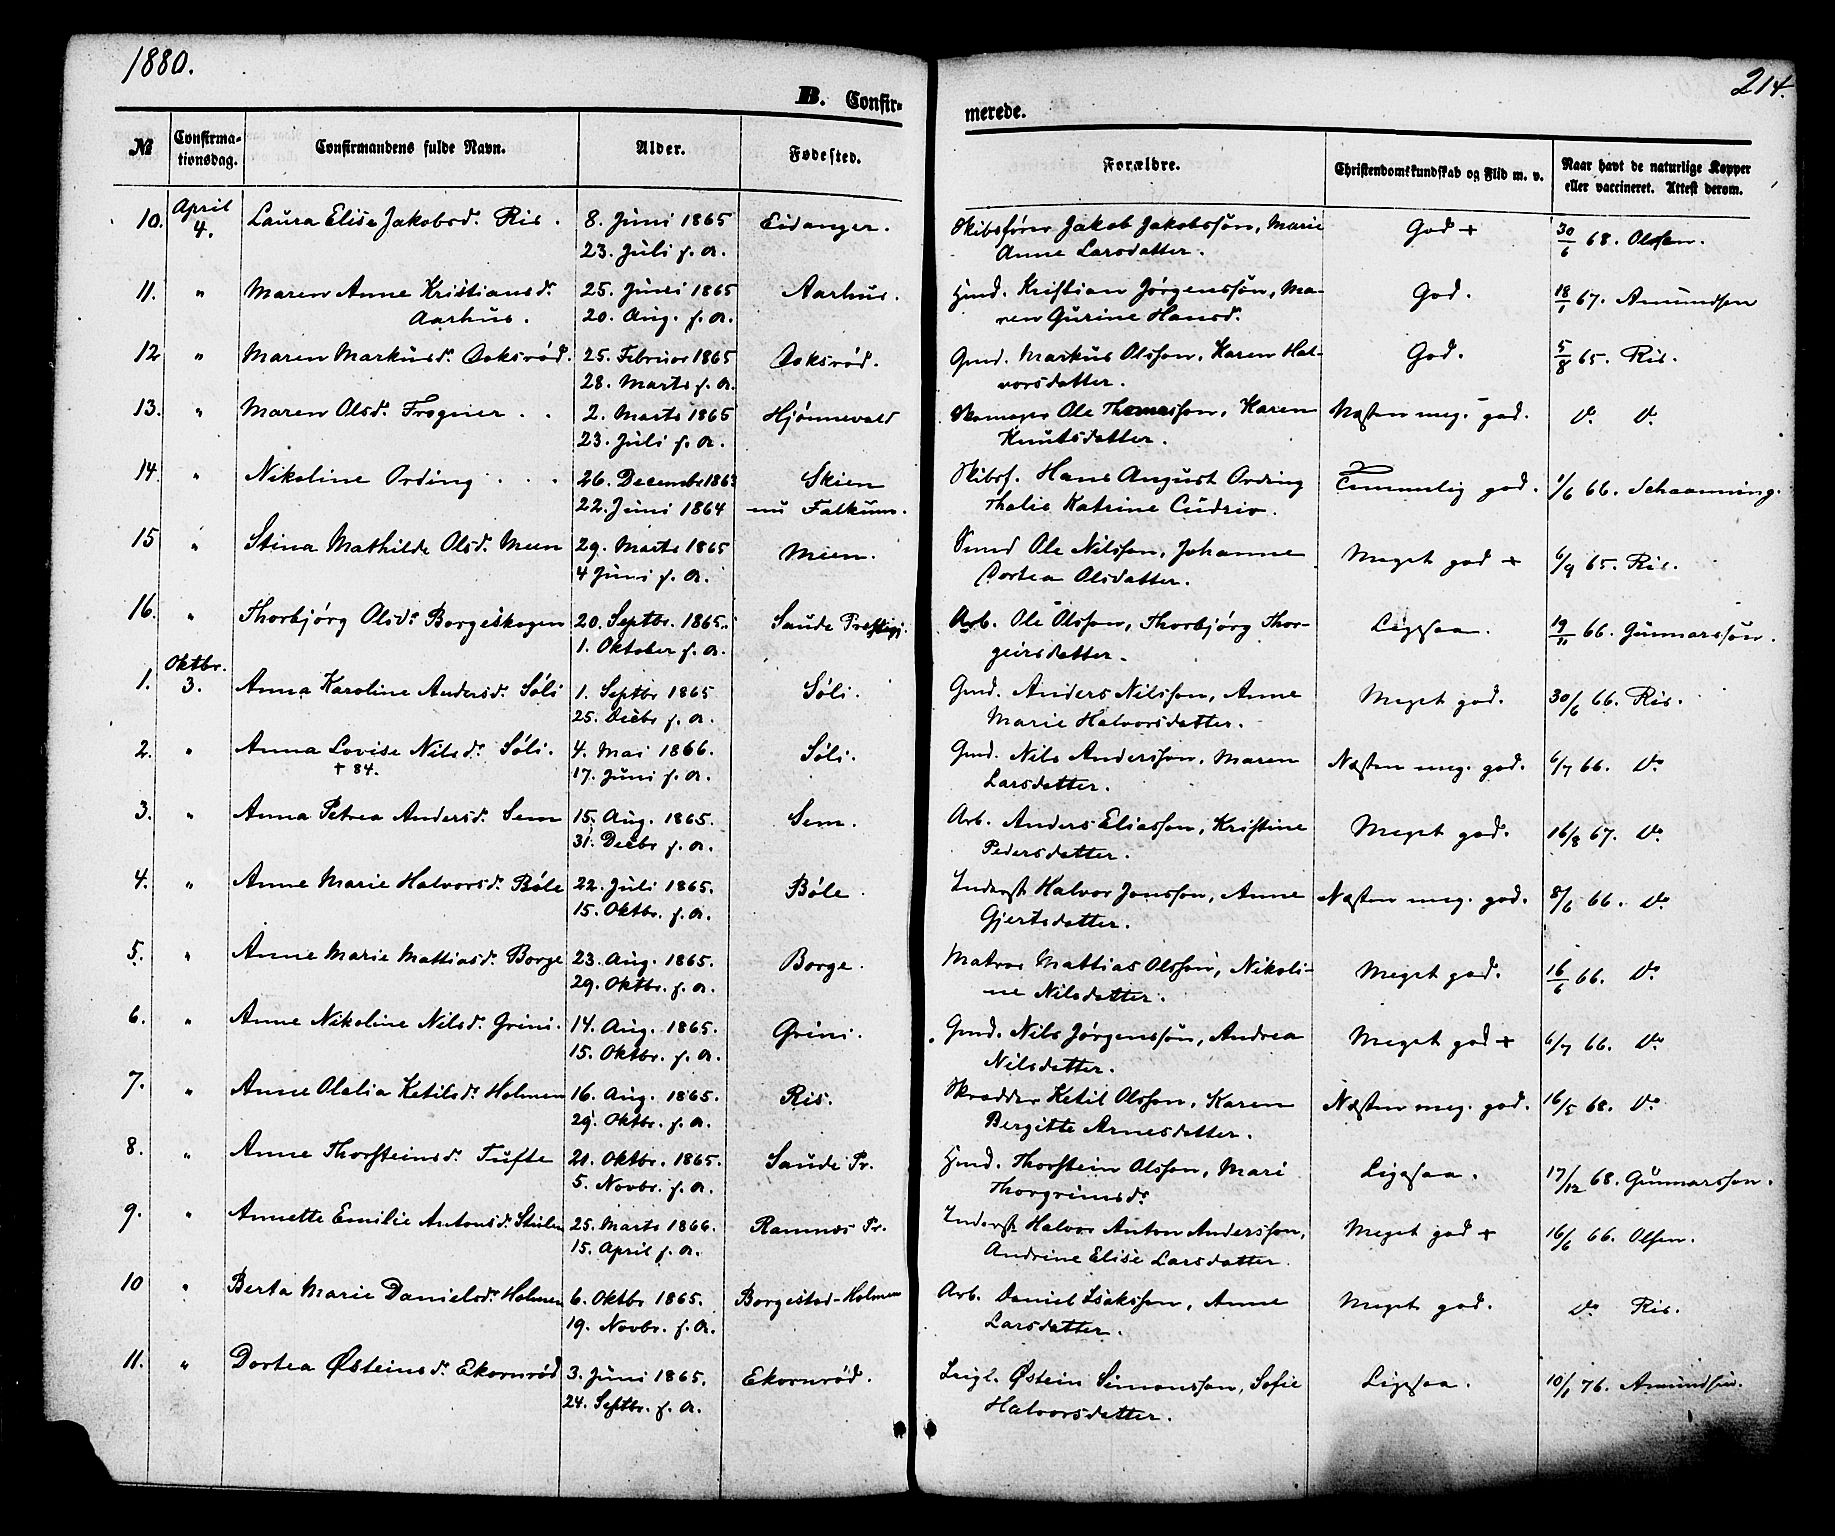 1880.
214.
B. Confir-
merede.
№ Confirma-tionsdag. Confirmandens fulde Navn. Alder. Fødested. Forældre. Christendomskundskab og Flid m. v. Naar havt de naturlige Kopper eller vaccineret. Attest derom.
10. April 4. Laura Elise Jakobsd. Ris. 8. Juni 1865 Eidanger. Skibsfører Jakob Jakobssøn, Marie God + 30/6 68. Olsen.
23. Juli s. A. Anne Larsdatter.
11. " Maren Anne Kristiansd. 25. Juni 1865 Aarhus. Hmd. Kristian Jørgenssøn, Ma- God. 18/1 67. Amundsen
Aarhus. 20. Aug. s. A. ren Gurine Hansd.
12 " Maren Markusd. 25. Februar 1865 Gmd. Markus Olsson, Karen Hal- God. 5/8 65. Ris.
28. Marts s. A. vorsdatter.
13. " Maren Olsd. Frogner . . 2. Marts 1865 Hjønnevald Skomager Ole Thomasson, Karen Næsten meg. god. do do
23. Juli s. A. Knutsdatter.
14. " Nikoline Ording . . . 26. December 1863 Skien Skibsf. Hans August Ording Temmelig god. 1/6 66. Schaanning.
22. Juni 1864 nu Falkum. Thalie Katrine Cudrio.
15 " Stina Mathilde Olsd. Meen 29. Marts 1865 Meen. Ole Nilsson, Johanne Meget god + 6/9 65. Ris.
4 Juni s. A. Dortea Olsdatter.
16. " Thorbjørg Olsd. Borgeskogen 20. Septbr. 1865. Saude Præstegj. Arb. Ole Olsson, Thorbjørg Thor- Ligesaa. 19/11 66. Gunnarssøn.
1. Oktober s. A. geirsdatter.
1. Oktbr. 3. Anna Karoline Andersd. Søli 1. Septbr 1865 Søli. Gmd. Anders Nilsson, Anne Meget god. 30/6 66. Ris.
25. Decbr s. A. Marie Halvorsdatter.
2. " Anna Lovise Nilsd. Søli. 4. Mai 1866. Søli. Gmd. Nils Andersson, Maren Næsten meg. god. 6/7 66. do
† 84. 17. Juni s. A. Larsdatter.
3. " Anna Petrea Andersd. Sem 15. Aug. 1865. Sem. Arb. Anders Eliasson, Kristine Meget god. 16/8 67. do
31. Decbr s. A. Pedersdatter.
4. " Anne Marie Halvorsd. Bøle 22. Juli 1865. Bøle. Inderst Halvor Jonsson, Anne Næsten meg. god. 8/6 66. do
15. Oktbr. s. A. Gjertsdatter.
5. " Anne Marie Mattiasd. Borge 23. Aug. 1865. Borge. Matros Mattias Olsson, Nikoli- Meget god. 16/6 66. do
29. Oktbr. s. A. ne Nilsdatter.
6. " Anne Nikoline Nilsd. Grini. 14. Aug. 1865. Grini. Gmd. Nils Jørgenssøn, Andrea Meget god + 6/7 66. do
15. Oktbr. s. A. Nilsdatter.
7. " Anne Olalia Ketilsd. Holmen 16. Aug. 1865. Ris. Skrædder Ketil Olsson, Karen Næsten meg. god. 16/5 68. do
29. Oktbr. s. A. Bergitte Arnesdatter.
8. " Anne Thorsteinsd. Tufte 21. Oktbr. 1865. Saude Pr. Hmd. Thorstein Olsson, Mari Ligesaa. 17/12 68. Gunnarsson.
5. Novbr. s. A. Thorgrimsd.
9. " Annette Emilie Antonsd. 25. Marts 1866. Ramnæs Pr. Inderst Halvor Anton Andersson, Meget god + 16/6 66. Olsen.
15. April s. A. Andrine Elise Larsdatter.
10 " Berta Marie Danielsd. Holmen 6. Oktbr 1865. Borgestad-Holmen Arb. Daniel Isaksson, Anne Meget god. do Ris.
19. Novbr. s. A. Larsdatter.
11. " Dortea Østeinsd. Ekornrød 3. Juni 1865. Ekornrød. Leigl. Østein Simonsson, Sofie Ligesaa. 10/1 76. Amundsen.
24. Septbr. s. A. Halvorsdatter.